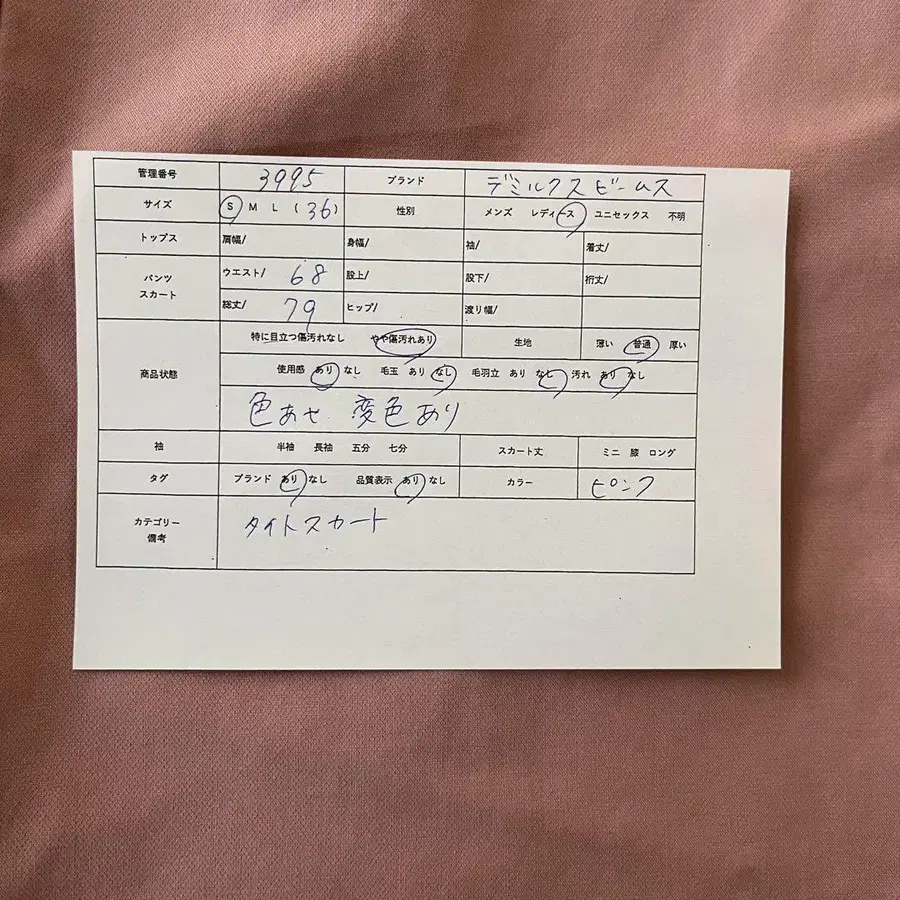 管理番号 3995 ブランド デミルクスビームス
サイズ S M L (36) 性別 メンズ レディース ユニセックス 不明
トップス 肩幅/ 身幅/ 袖/ 着丈/
パンツ スカート ウエスト/ 68 股上/ 股下/ 裄丈/
総丈/ 79 ヒップ/ 渡り幅/
商品状態 特に目立つ傷汚れなし やや傷汚れあり 生地 薄い 普通 厚い
使用感 あり なし 毛玉 あり なし 毛羽立 あり なし 汚れ あり なし
色あせ 変色あり
袖 半袖 長袖 五分 七分 スカート丈 ミニ 膝 ロング
タグ ブランド あり なし 品質表示 あり なし カラー ピンク
カテゴリー 備考 タイトスカート